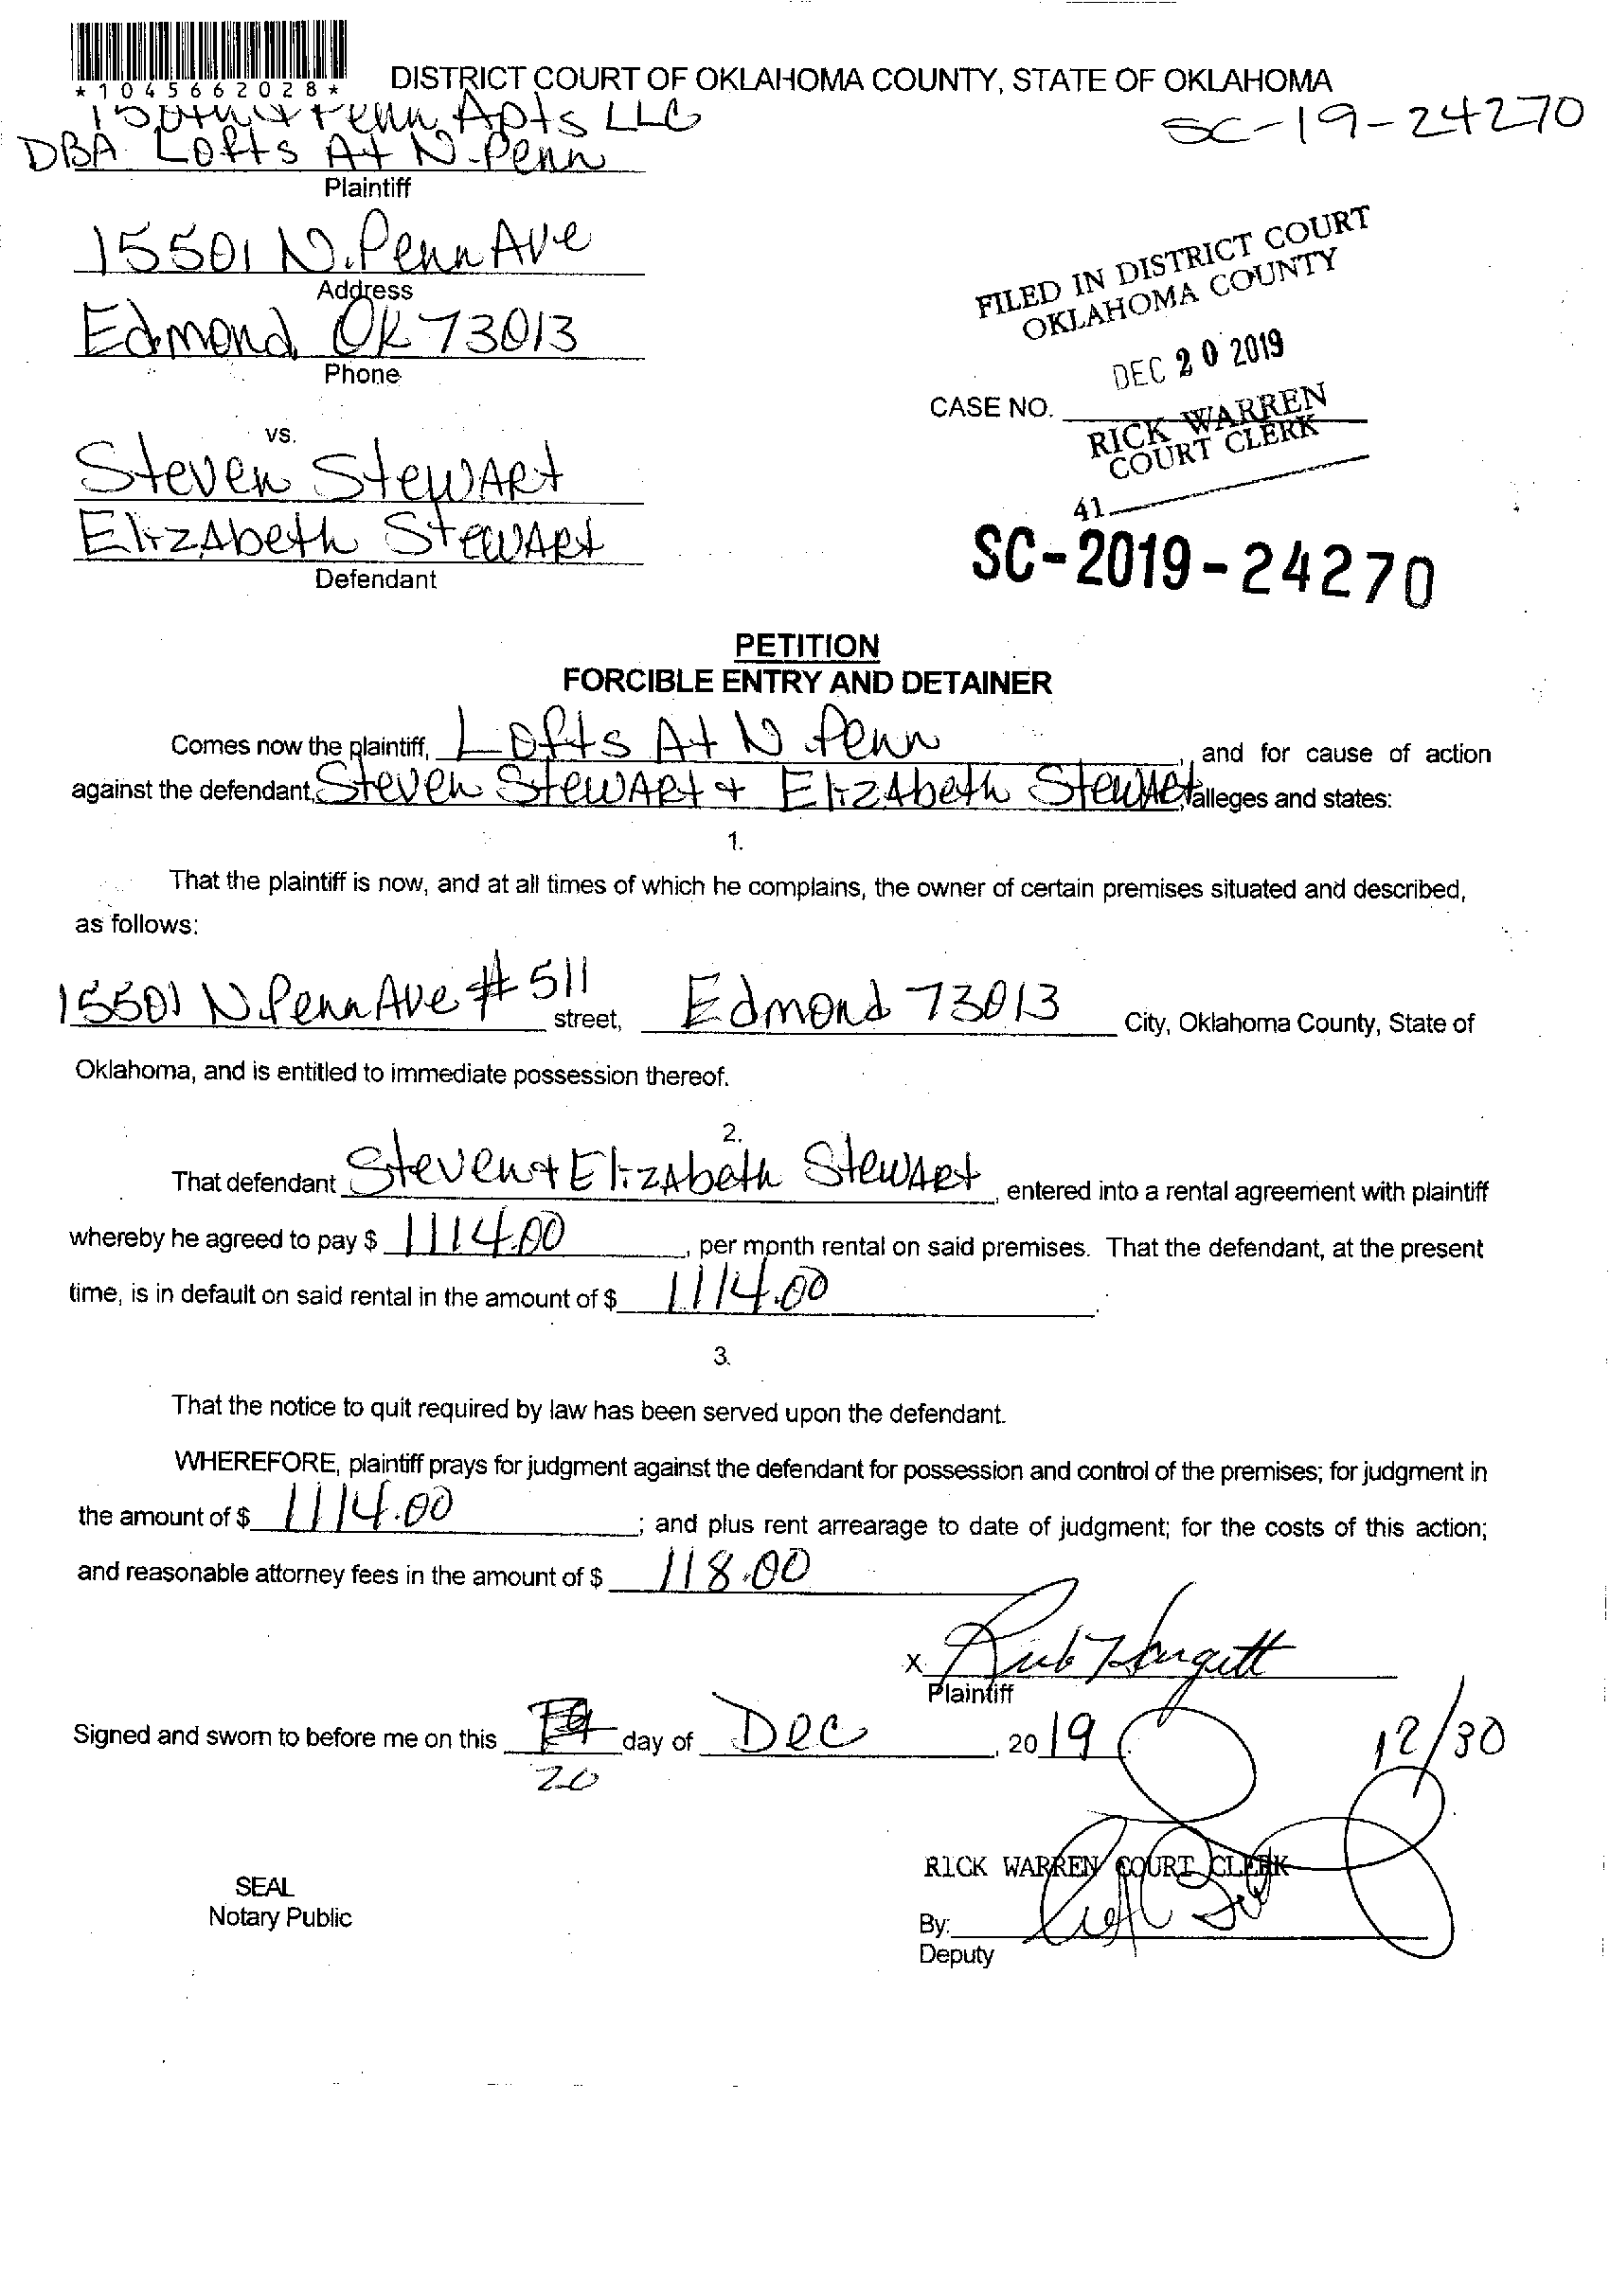 *1045662028*
DISTRICT COURT OF OKLAHOMA COUNTY, STATE OF OKLAHOMA
Penn Apts LLC
SC-19-24270
DBA Lofts At N. Penn
Plaintiff
15501 N. Penn Ave
Address
Edmond, OK 73013
Phone
FILED IN DISTRICT COURT
OKLAHOMA COUNTY
DEC 20 2019
CASE NO.
RICK WARREN
COURT CLERK
41
vs.
Steven Stewart
Elizabeth Stewart
Defendant
SC-2019-24270
PETITION
FORCIBLE ENTRY AND DETAINER
Comes now the plaintiff, Lofts At N Penn, and for cause of action
against the defendant, Steven Stewart + Elizabeth Stewart, alleges and states:
1.
That the plaintiff is now, and at all times of which he complains, the owner of certain premises situated and described,
as follows:
15501 N. Penn Ave # 511 street, Edmond 73013 City, Oklahoma County, State of
Oklahoma, and is entitled to immediate possession thereof.
2.
That defendant Steven + Elizabeth Stewart, entered into a rental agreement with plaintiff
whereby he agreed to pay $ 1114.00, per month rental on said premises. That the defendant, at the present
time, is in default on said rental in the amount of $ 1114.00.
3.
That the notice to quit required by law has been served upon the defendant.
WHEREFORE, plaintiff prays for judgment against the defendant for possession and control of the premises; for judgment in
the amount of $ 1114.00; and plus rent arrearage to date of judgment; for the costs of this action;
and reasonable attorney fees in the amount of $ 118.00
X
Plaintiff
Signed and sworn to before me on this day of Dec, 2019
20
12/30
RICK WARREN COURT CLERK
SEAL
Notary Public
By:
Deputy